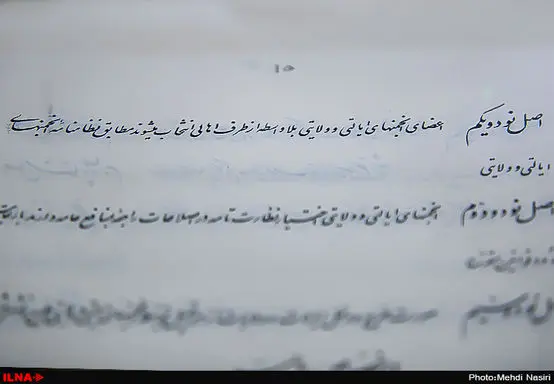 ۱۵
اصل نود و یکم اعضای انجمنهای ایالتی و ولایتی بلاواسطه از طرف اهالی انتخاب میشوند مطابق نظامنامه انجمنهای
ایالتی و ولایتی
اصل نود و دوم انجمنهای ایالتی و ولایتی اختیار نظارت تامه در اصلاحات راجعه بمنافع عامه دارند با رعایت
حدود قوانین مقرره
صورت خرج و دخل ایالات و ولایات
ILNA
Photo:Mehdi Nasiri